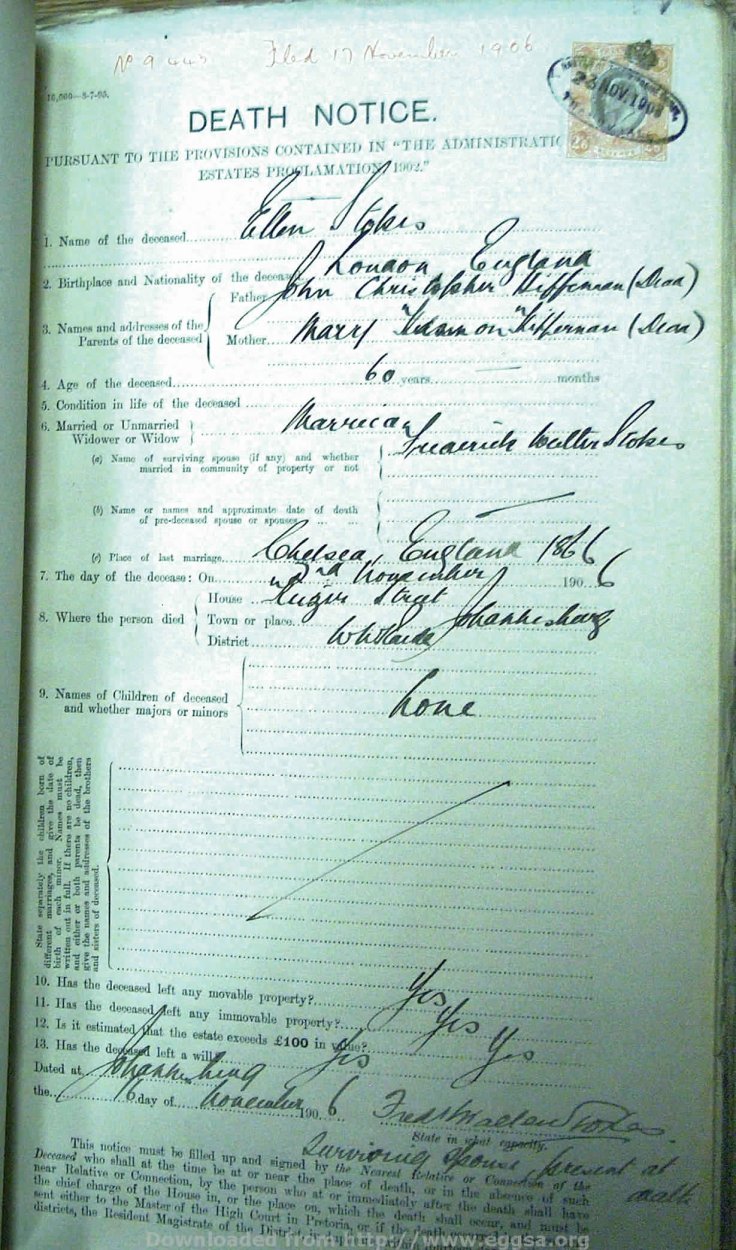 No 9443 Filed 17 November 1906
10,000—8-7-05.
23 NOV. 1906
DEATH NOTICE.
PURSUANT TO THE PROVISIONS CONTAINED IN "THE ADMINISTRATIO
ESTATES PROCLAMATION 1902."
1. Name of the deceased Ellen Stokes
2. Birthplace and Nationality of the deceased London England
3. Names and addresses of the Parents of the deceased
Father John Christopher Kiffernan (Dead)
Mother Mary Kiffernan (Dead)
4. Age of the deceased 60 years — months
5. Condition in life of the deceased
6. Married or Unmarried Married
Widower or Widow
(a) Name of surviving spouse (if any) and whether Frederick Walter Stokes
married in community of property or not
(b) Name or names and approximate date of death
of pre-deceased spouse or spouses
(c) Place of last marriage Chelsea, England 1866
7. The day of the decease: On November 1906
8. Where the person died
House Street
Town or place Johannesburg
District
9. Names of Children of deceased None
and whether majors or minors
State separately the children born of
different marriages, and give the date of
birth of each minor. Names must be
written out in full. If there are no children,
and either or both parents be dead, then
give the names and addresses of the brothers
and sisters of deceased.
10. Has the deceased left any movable property? Yes
11. Has the deceased left any immovable property? Yes
12. Is it estimated that the estate exceeds £100 in value? Yes
13. Has the deceased left a will? Yes
Dated at Johannesburg
the 16 day of November 1906 Stokes
State in what capacity.
Surviving Spouse, present at
death
This notice must be filled up and signed by the Nearest Relative or Connection of the
Deceased who shall at the time be at or near the place of death, or in the absence of such
near Relative or Connection, by the person who at or immediately after the death shall have
the chief charge of the House in, or the place on, which the death shall occur, and must be
sent either to the Master of the High Court in Pretoria, or if the death
districts, the Resident Magistrate of the District
Downloaded from http://www.eggsa.org